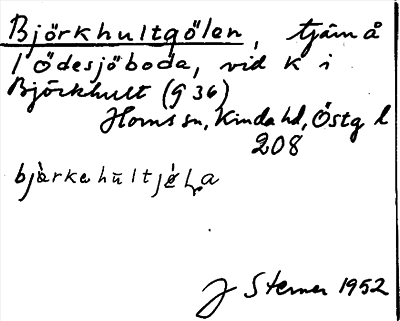 Björkhultgölen, tjärn å
1 Ödesjöboda, vid k i
Björkhult (g 36)
Horns sn, Kinda hd, Östg l
208
J Sterner 1952